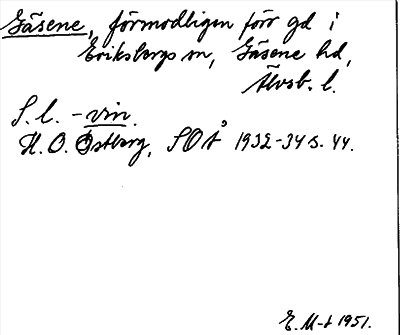 Gäsene, förmodligen förr gd i
Eriksbergs sn, Gäsene hd,
Älvsb. l.
S. l. - vin.
H. O. Östberg, SOÅ 1932-34 s. 44.
E. M-t 1951.